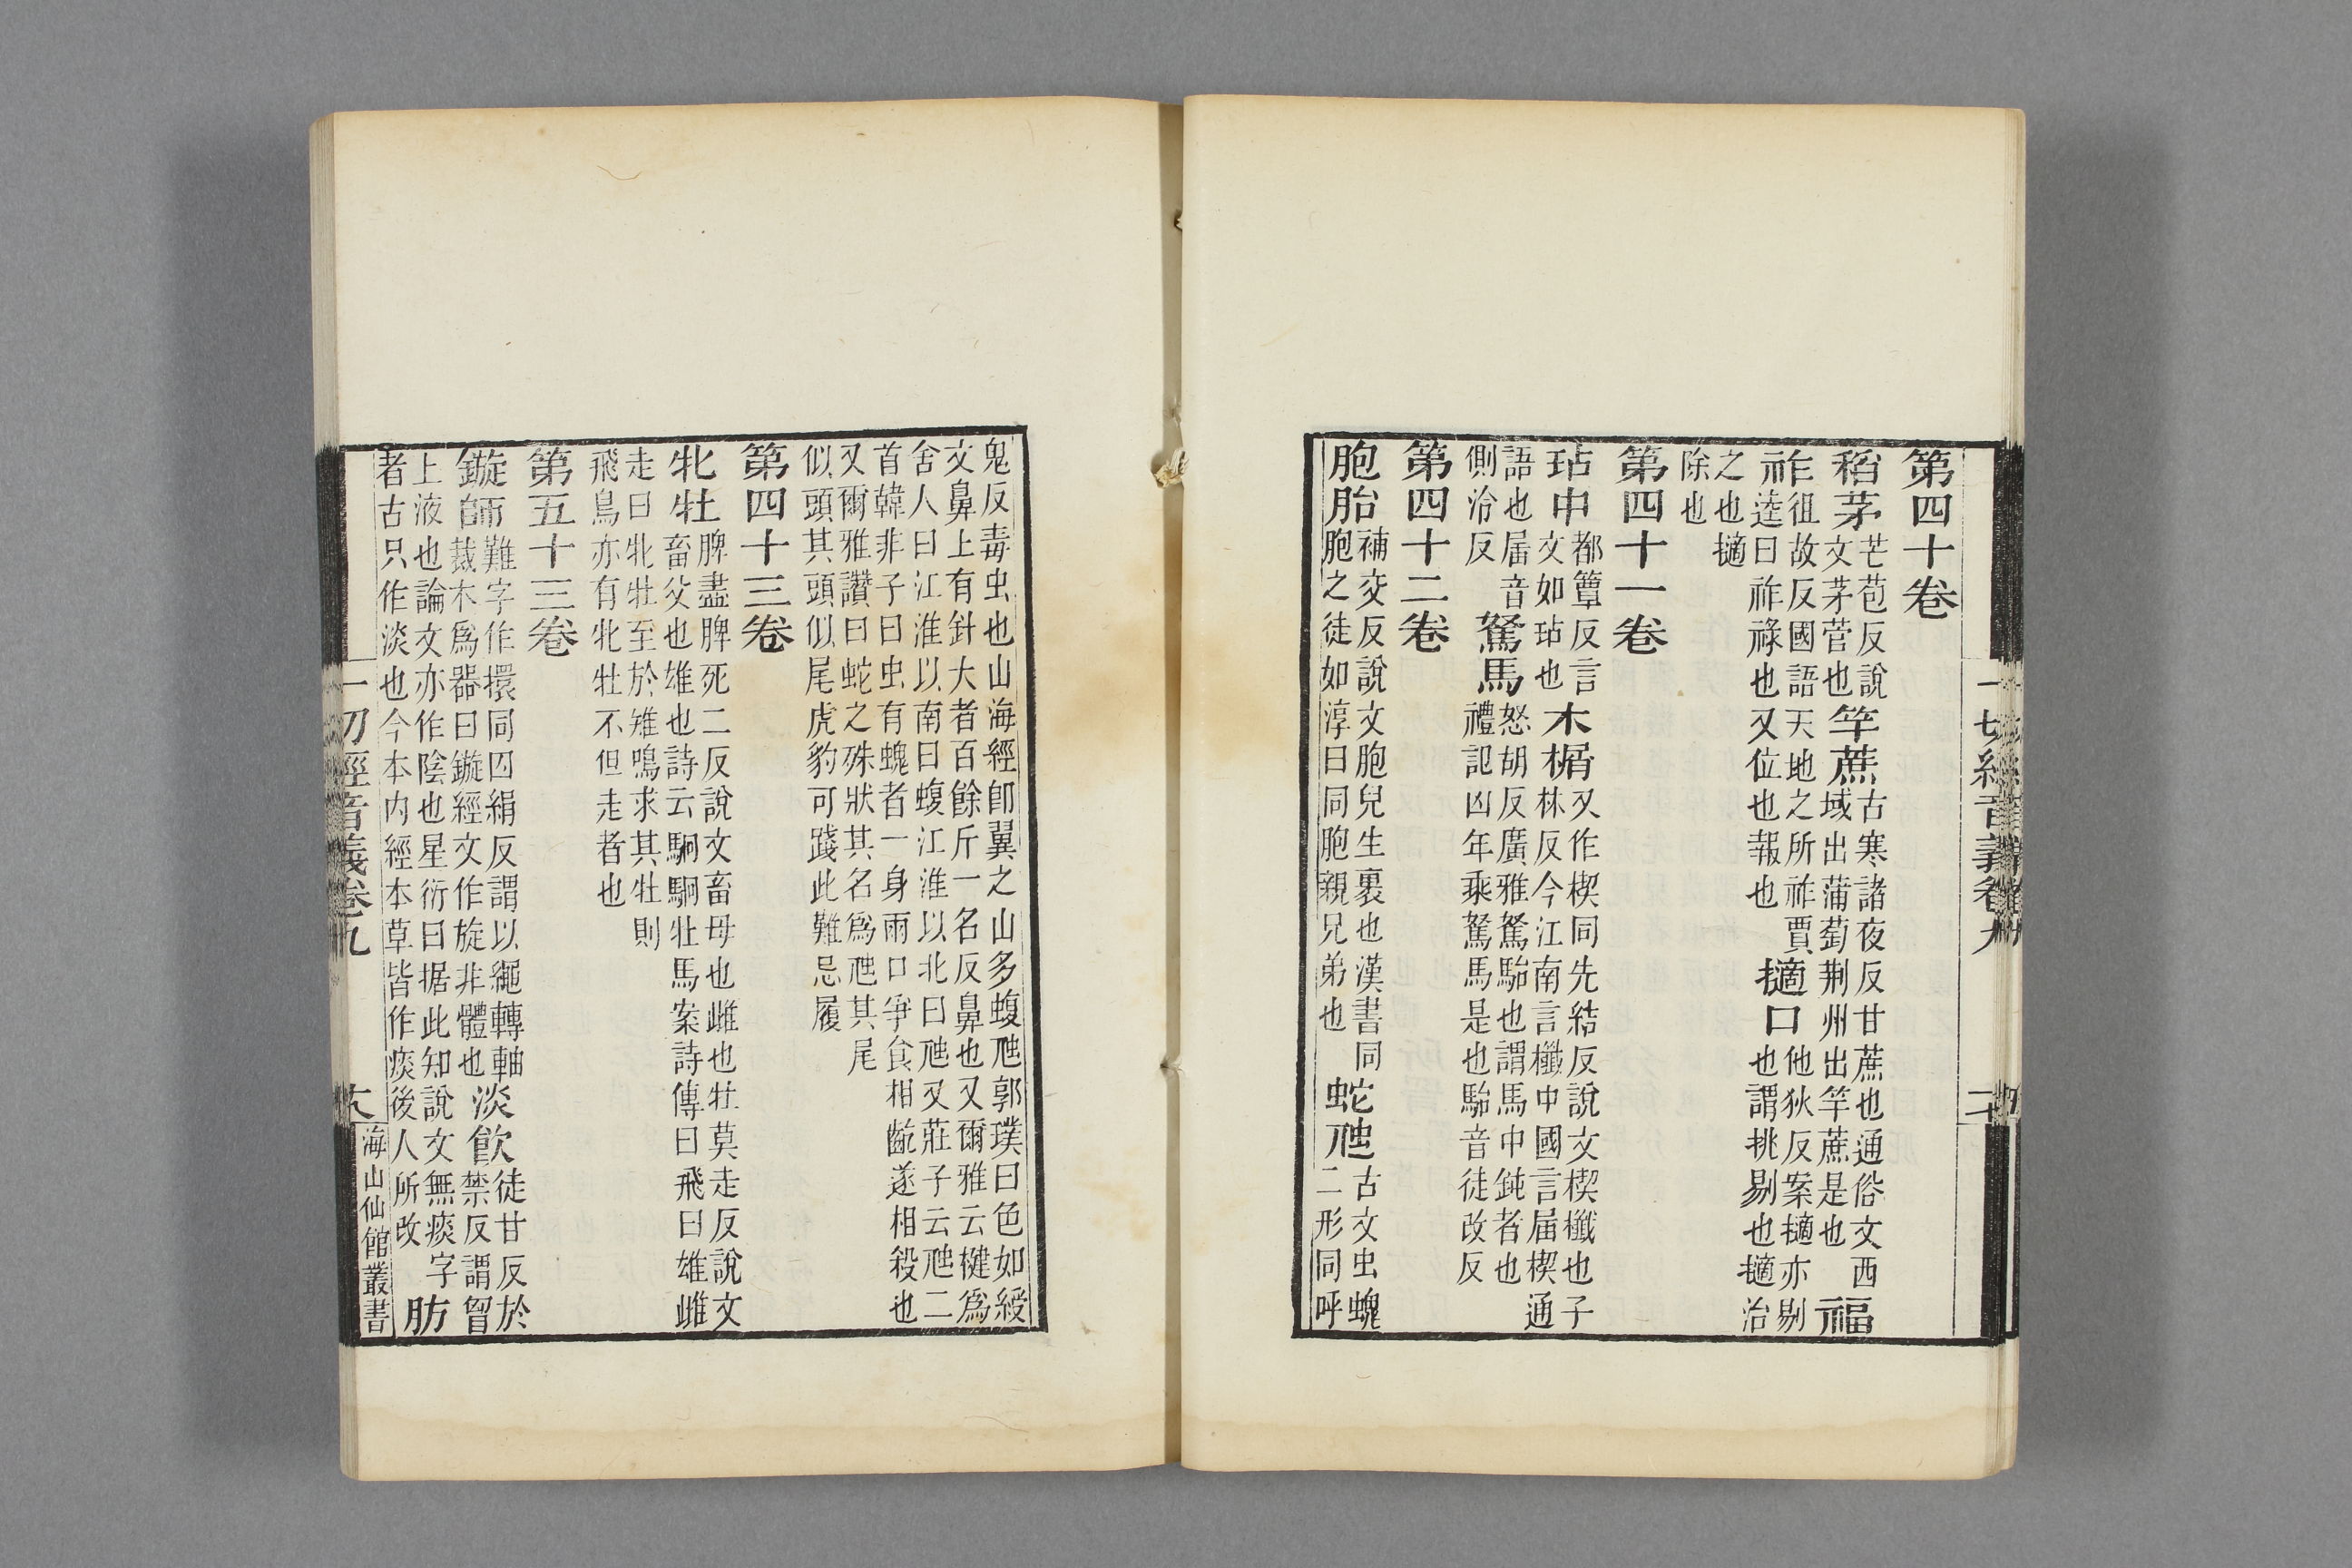 一切經音義卷九
二十
第四十卷
稻茅
芒苞反說
文茅菅也
竿蔗
古寒諸夜反甘蔗也通俗文西
域出蒲萄荆州出竿蔗是也
福
祚
徂故反國語天地之所祚賈
逵曰祚祿也又位也報也
擿口
他狄反案擿亦剔
也謂挑剔也擿治
之也擿
除也
第四十一卷
玷中
都簟反言
文如玷也
木楯
又作楔同先結反說文楔櫼也子
林反今江南言櫼中國言届楔通
語也届音
側洽反
駑馬
怒胡反廣雅駑駘也謂馬中鈍者也
禮記凶年乘駑馬是也駘音徒改反
第四十二卷
胞胎
補交反說文胞兒生裹也漢書同
胞之徒如淳曰同胞親兄弟也
蛇虺
古文虫螝
二形同呼
鬼反毒虫也山海經卽翼之山多蝮虺郭璞曰色如綬
文鼻上有針大者百餘斤一名反鼻也又爾雅云揵爲
舍人曰江淮以南曰蝮江淮以北曰虺又莊子云虺二
首韓非子曰虫有螝者一身兩口爭食相齕遂相殺也
又爾雅讚曰蛇之殊狀其名爲虺其尾
似頭其頭似尾虎豹可踐此難忌履
第四十三卷
牝牡
脾盡脾死二反說文畜母也雌也牡莫走反說文
畜父也雄也詩云駉駉牡馬案詩傳曰飛曰雄雌
走曰牝牡至於雉鳴求其牡則
飛鳥亦有牝牡不但走者也
第五十三卷
鏇師
難字作擐同囚絹反謂以繩轉軸
裁木爲器曰鏇經文作旋非體也
淡飮
徒甘反於
禁反謂胷
上液也論文亦作陰也星衍曰据此知說文無痰字
者古只作淡也今本内經本草皆作痰後人所改
肪
一切經音義卷九
海山仙館叢書